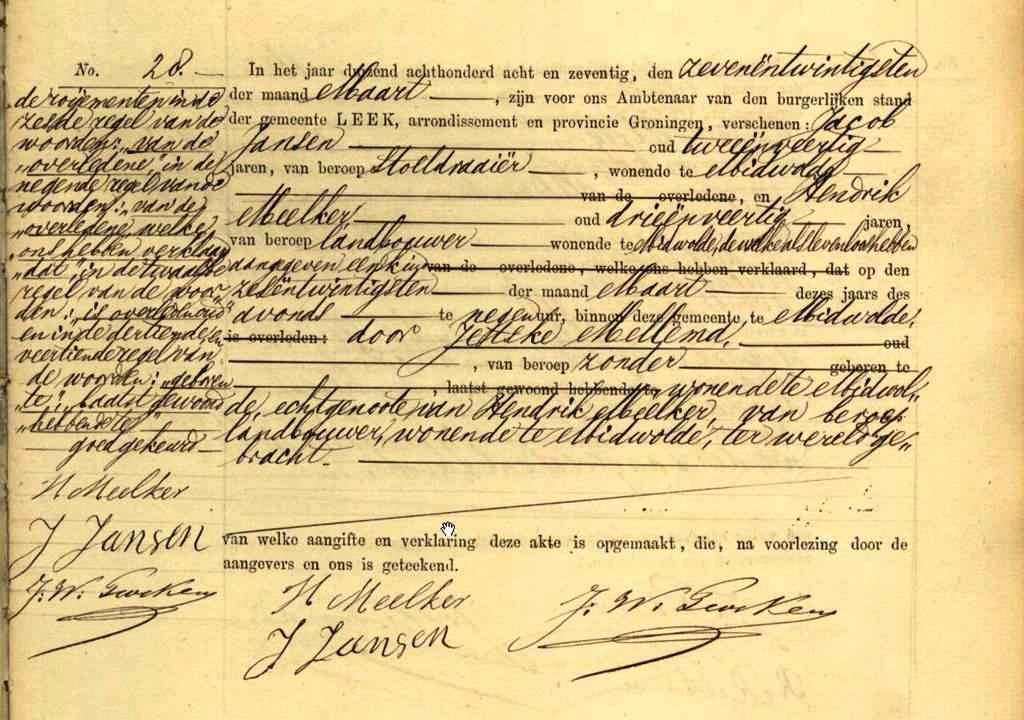 No. 28.
de royementen in de
zesde regel van de
woorden: „van de
„overledene," in de
negende regel van de
woorden: „van de
„overledene, welke
„ons hebben verklaard
„dat", in de twaalfde
regel van de woor-
den: „is overleden"
en in de dertiende en
veertiende regel van
de woorden: „geboren
te", „laatst gewoond
„hebbende te"
goedgekeurd
H Meelker
J Jansen
In het jaar duizend achthonderd acht en zeventig, den zevenëntwintigsten
der maand Maart, zijn voor ons Ambtenaar van den burgerlijken stand
der gemeente LEEK, arrondissement en provincie Groningen, verschenen: Jacob
Jansen oud tweeënveertig
jaren, van beroep Stoeldraaiër, wonende te Midwolde
van de overledene, en Hendrik
Meelker oud drieënveertig jaren,
van beroep landbouwer wonende te Midwolde, de welke als levenloos hebben
aangegeven een kind van de overledene, welke ons hebben verklaard, dat op den
zesëntwintigsten der maand Maart dezes jaars des
avonds te negen uur, binnen deze gemeente te Midwolde,
is overleden: door Jetske Mellema, oud
, van beroep zonder geboren te
, laatst gewoond hebbende te wonende te Midwol„
de, echtgenoote van Hendrik Meelker, van beroep
landbouwer, wonende te Midwolde, ter wereld ge„
bracht.
van welke aangifte en verklaring deze akte is opgemaakt, die, na voorlezing door de
aangevers en ons is geteekend.
H Meelker
J Jansen